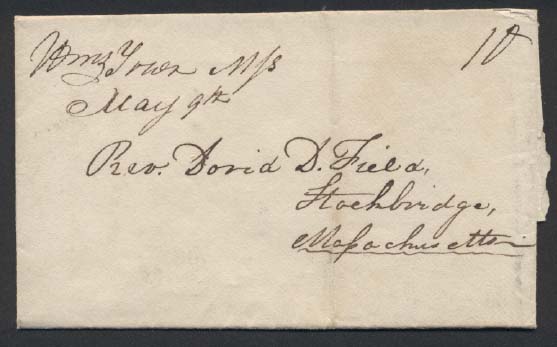 Wms Town Mss
10
May 9th
Rev. David D. Field,
Stockbridge,
Massachusetts